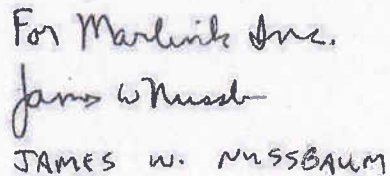 For Marlink Inc.
James W Nussb
JAMES W. NUSSBAUM